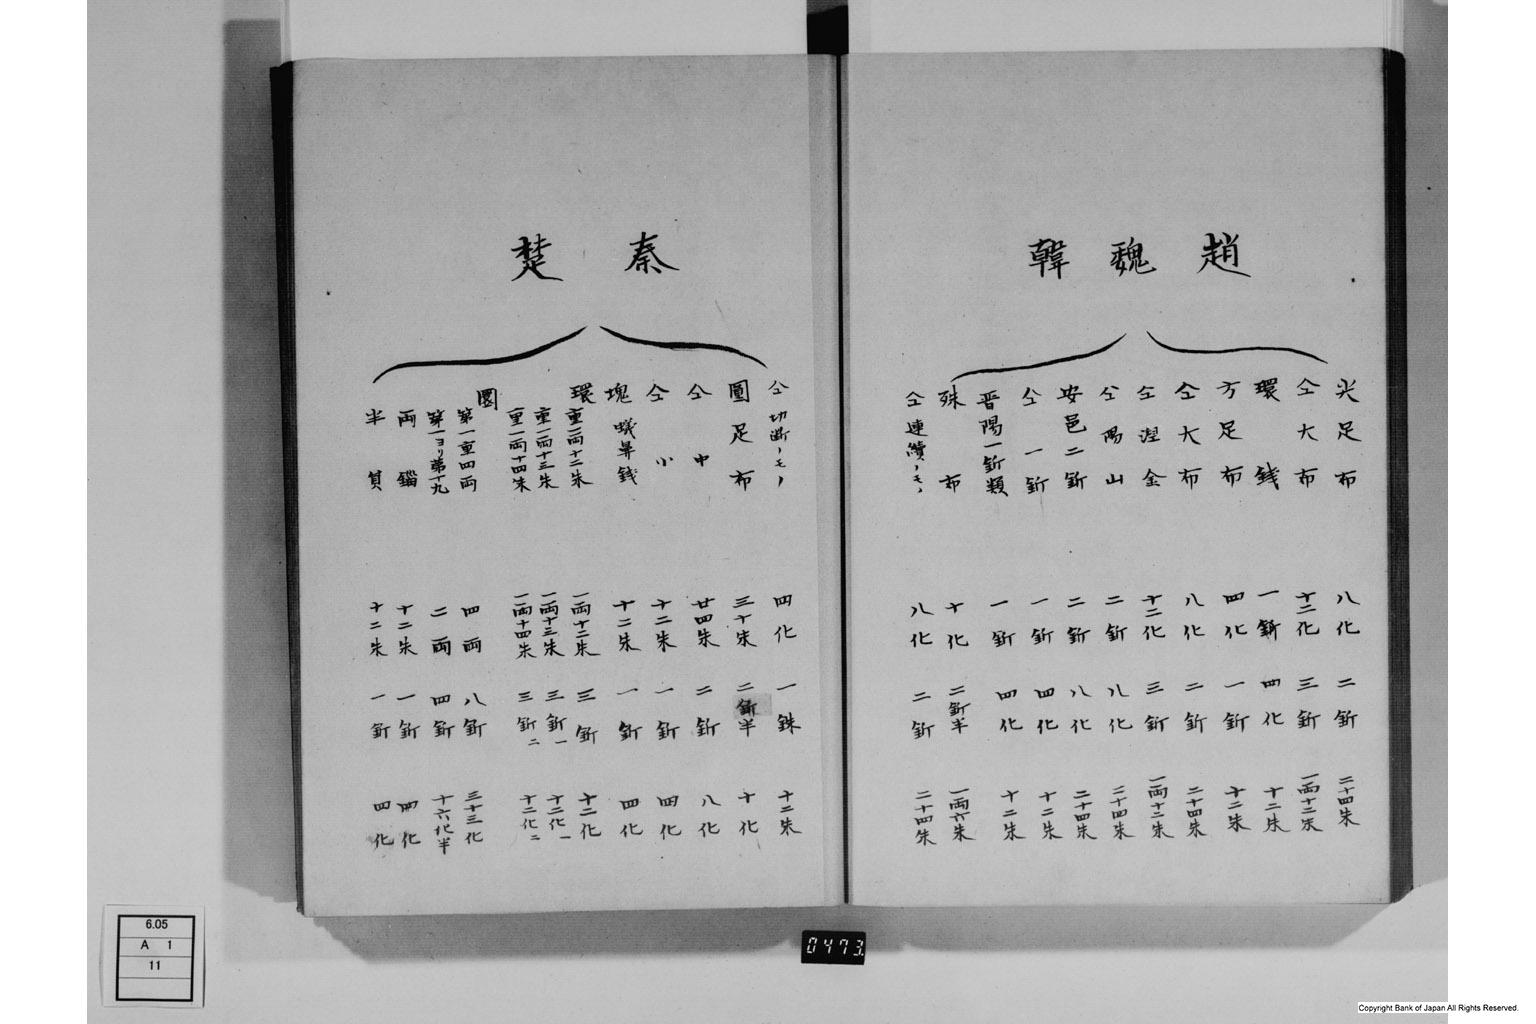 趙
魏
韓
尖足布 八化 二釿 二十四朱
仝大布 十二化 三釿 一両十二朱
環銭 一釿 四化 十二朱
方足布 四化 一釿 十二朱
仝大布 八化 二釿 二十四朱
仝涅金 十二化 三釿 一両十二朱
仝陽山 二釿 八化 二十四朱
安邑二釿 二釿 八化 二十四朱
仝一釿 一釿 四化 十二朱
晋陽一釿類 一釿 四化 十二朱
殊布 十化 二釿半 一両六朱
仝連續ノモノ 八化 二釿 二十四朱
秦
楚
仝切断ノモノ 四化 一銖 十二朱
圓足布 三十朱 二釿半 十化
仝中 廿四朱 二釿 八化
仝小 十二朱 一釿 四化
塊 蟻鼻銭 十二朱 一釿 四化
環 重一両十二朱 一両十二朱 三釿 十二化
重一両十三朱 一両十三朱 三釿一 十二化一
重一両十四朱 一両十四朱 三釿二 十二化二
圜
第一重四両 四両 八釿 三十三化
第一ヨリ第十九 二両 四釿 十六化半
両錙 十二朱 一釿 四化
半貝 十二朱 一釿 四化
6.05
A 1
11
0473
Copyright Bank of Japan All Rights Reserved.